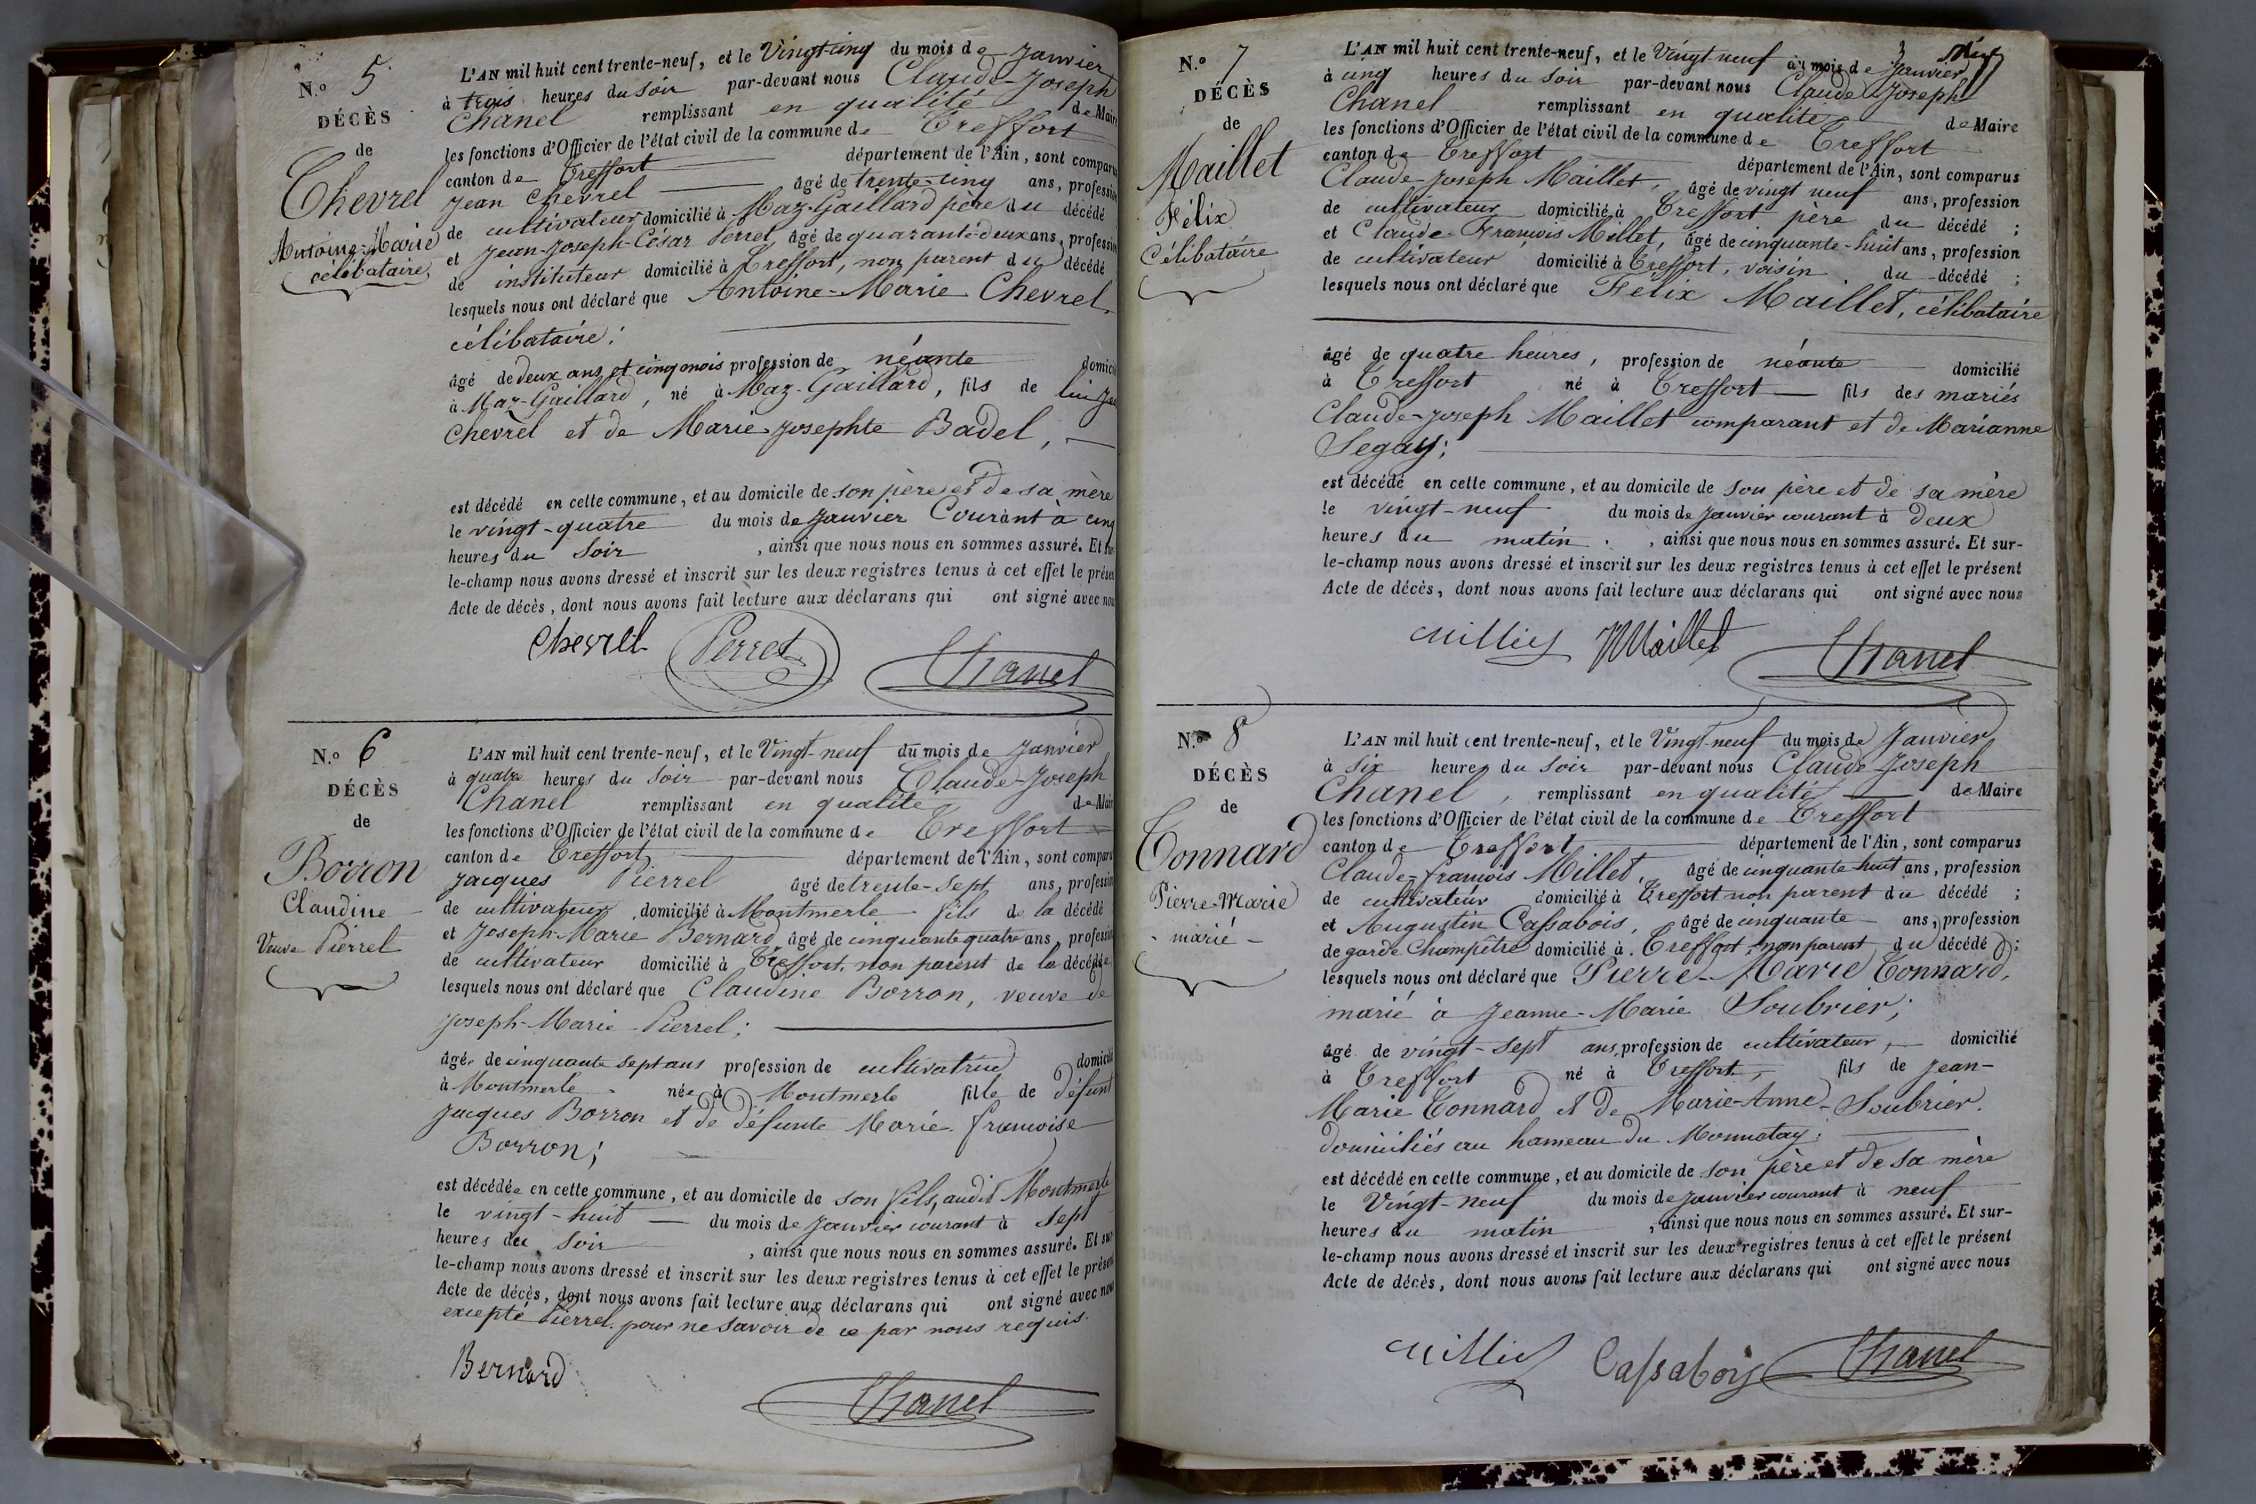 N.º 5
DÉCÈS
de
Chevrel
Antoine-Marie
célibataire
L'AN mil huit cent trente-neuf, et le Vingt-cinq du mois de Janvier
à trois heures du soir par-devant nous Claude-Joseph
Chanel remplissant en qualité de Maire
les fonctions d'Officier de l'état civil de la commune de Treffort
canton de Treffort département de l'Ain, sont comparus
Jean Chevrel âgé de trente-cinq ans, profession
de cultivateur domicilié à Maz-Gaillard père du décédé
et Jean-Joseph-César Perret, âgé de quarante-deux ans, profession
de instituteur domicilié à Treffort, non parent du décédé
lesquels nous ont déclaré que Antoine-Marie Chevrel,
célibataire;
âgé de deux ans et cinq mois profession de néante domicilié
à Maz-Gaillard, né à Maz-Gaillard, fils de lui Jean
Chevrel et de Marie-Josephte Badel,
est décédé en cette commune, et au domicile de son père et de sa mère
le vingt-quatre du mois de Janvier Courant à cinq
heures du Soir, ainsi que nous nous en sommes assuré. Et sur-
le-champ nous avons dressé et inscrit sur les deux registres tenus à cet effet le présent
Acte de décès, dont nous avons fait lecture aux déclarans qui ont signé avec nous
Chevrel Perret Chanel
N.º 6
DÉCÈS
de
Borron
Claudine
Veuve Pierrel
L'AN mil huit cent trente-neuf, et le Vingt-neuf du mois de Janvier
à quatre heures du Soir par-devant nous Claude-Joseph
Chanel remplissant en qualité de Maire
les fonctions d'Officier de l'état civil de la commune de Treffort
canton de Treffort département de l'Ain, sont comparus
Jacques Pierrel âgé de trente-sept ans, profession
de cultivateur, domicilié à Montmerle fils de la décédé
et Joseph-Marie Bernard, âgé de cinquante quatre ans, profession
de cultivateur domicilié à Treffort, non parent de la décédée
lesquels nous ont déclaré que Claudine Borron, veuve de
Joseph-Marie Pierrel;
âgée de cinquante sept ans profession de cultivatrice domicilié
à Montmerle née à Montmerle fille de défunt
Jacques Borron et de défunte Marie françoise
Borron;
est décédée en cette commune, et au domicile de son fils, audit Montmerle
le vingt-huit du mois de Janvier courant à sept
heures du Soir, ainsi que nous nous en sommes assuré. Et sur-
le-champ nous avons dressé et inscrit sur les deux registres tenus à cet effet le présent
Acte de décès, dont nous avons fait lecture aux déclarans qui ont signé avec nous
excepté Pierrel pour ne savoir de ce par nous requis.
Bernard
Chanel
3
N.º 7
DÉCÈS
de
Maillet
Félix
Célibataire
L'AN mil huit cent trente-neuf, et le Vingt-neuf du mois de Janvier
à cinq heures du Soir par-devant nous Claude Joseph
Chanel remplissant en qualité de Maire
les fonctions d'Officier de l'état civil de la commune de Treffort
canton de Treffort département de l'Ain, sont comparus
Claude-Joseph Maillet, âgé de vingt neuf ans, profession
de cultivateur domicilié à Treffort père du décédé ;
et Claude-François Millet, âgé de cinquante-huit ans, profession
de cultivateur domicilié à Treffort, voisin du décédé ;
lesquels nous ont déclaré que Félix Maillet, célibataire
âgé de quatre heures, profession de néante domicilié
à Treffort né à Treffort fils des mariés
Claude-Joseph Maillet comparant et de Marianne
Segay;
est décédé en cette commune, et au domicile de son père et de sa mère
le vingt-neuf du mois de Janvier courant à deux
heures du matin, ainsi que nous nous en sommes assuré. Et sur-
le-champ nous avons dressé et inscrit sur les deux registres tenus à cet effet le présent
Acte de décès, dont nous avons fait lecture aux déclarans qui ont signé avec nous
Maillet Chanel
N.º 8
DÉCÈS
de
Tonnard
Pierre-Marie
- marié -
L'AN mil huit cent trente-neuf, et le Vingt-neuf du mois de Janvier
à six heures du Soir par-devant nous Claude-Joseph
Chanel, remplissant en qualité de Maire
les fonctions d'Officier de l'état civil de la commune de Treffort
canton de Treffort département de l'Ain, sont comparus
Claude-françois Millet, âgé de cinquante huit ans, profession
de cultivateur domicilié à Treffort non parent du décédé ;
et Augustin Cassabois, âgé de cinquante ans, profession
de garde Champêtre domicilié à Treffort, non parent du décédé ;
lesquels nous ont déclaré que Pierre-Marie Tonnard,
marié à Jeanne-Marie Soubrier;
âgé de vingt-sept ans, profession de cultivateur, domicilié
à Treffort né à Treffort, fils de Jean-
Marie Tonnard et de Marie-Anne Soubrier.
domiciliés au hameau du Monnetay;
est décédé en cette commune, et au domicile de son père et de sa mère
le Vingt-neuf du mois de Janvier courant à neuf
heures du matin, ainsi que nous nous en sommes assuré. Et sur-
le-champ nous avons dressé et inscrit sur les deux registres tenus à cet effet le présent
Acte de décès, dont nous avons fait lecture aux déclarans qui ont signé avec nous
Cassabois Chanel